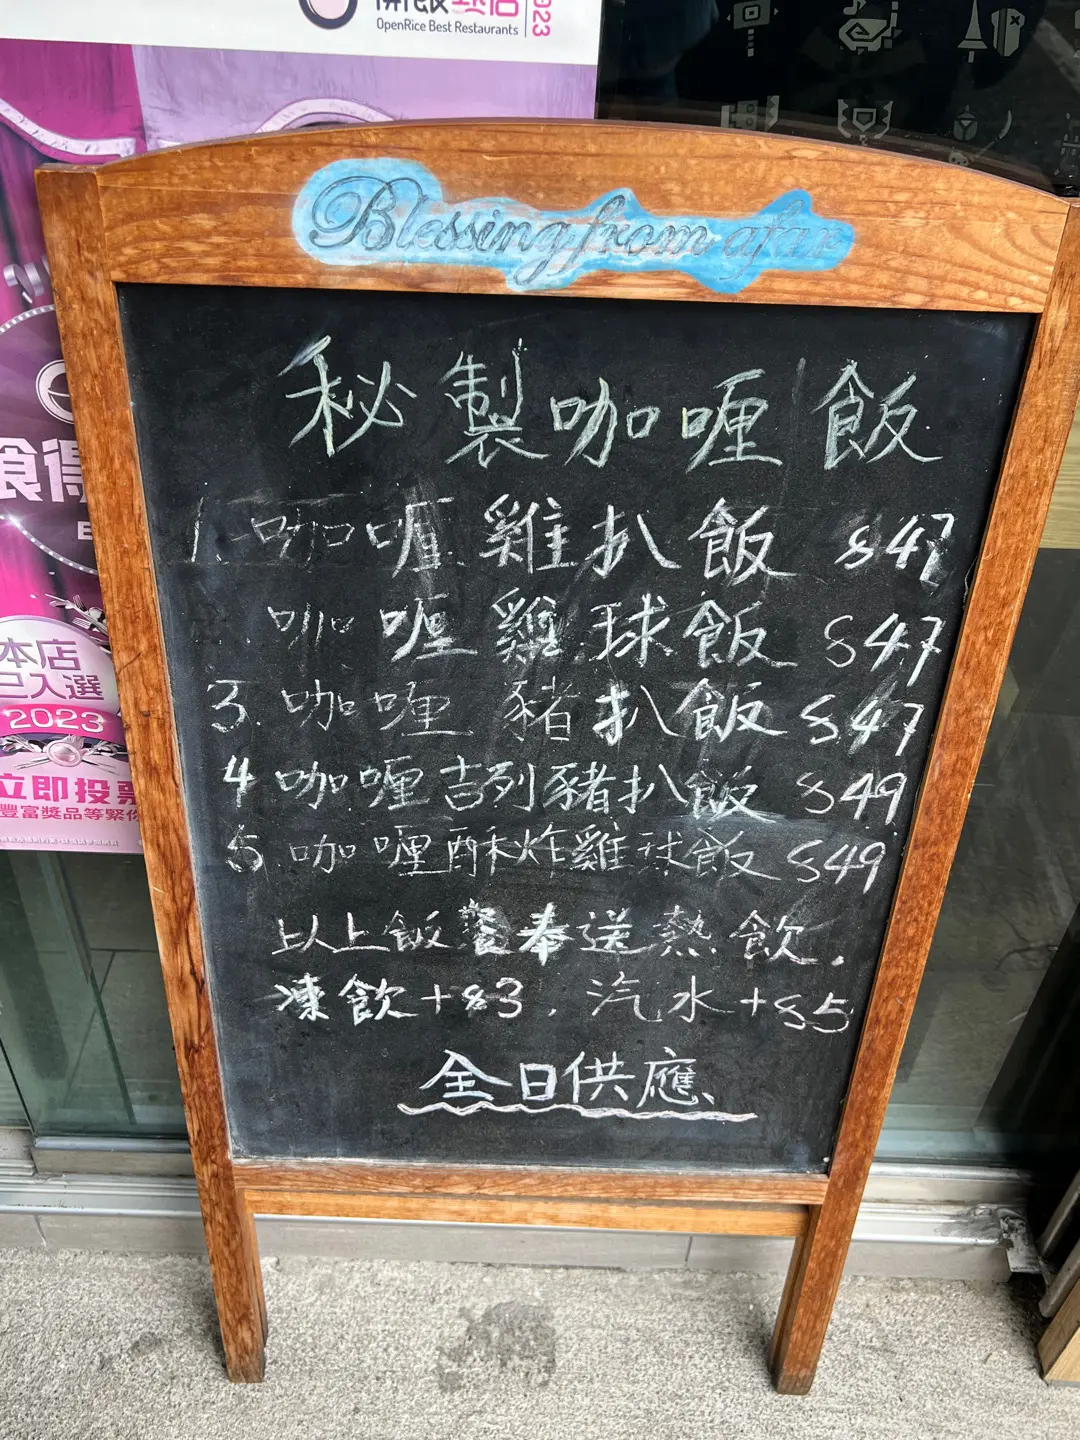 OpenRice Best Restaurants
2023
Blessing from afar
秘製咖喱飯
1. 咖喱雞扒飯 $47
咖喱雞球飯 $47
3. 咖喱豬扒飯 $47
4 咖喱吉列豬扒飯 $49
5. 咖喱酥炸雞球飯 $49
以上飯餐奉送熱飲.
凍飲+$3. 汽水+$5
全日供應
食得
本店
已入選
2023
立即投票
豐富獎品等緊你